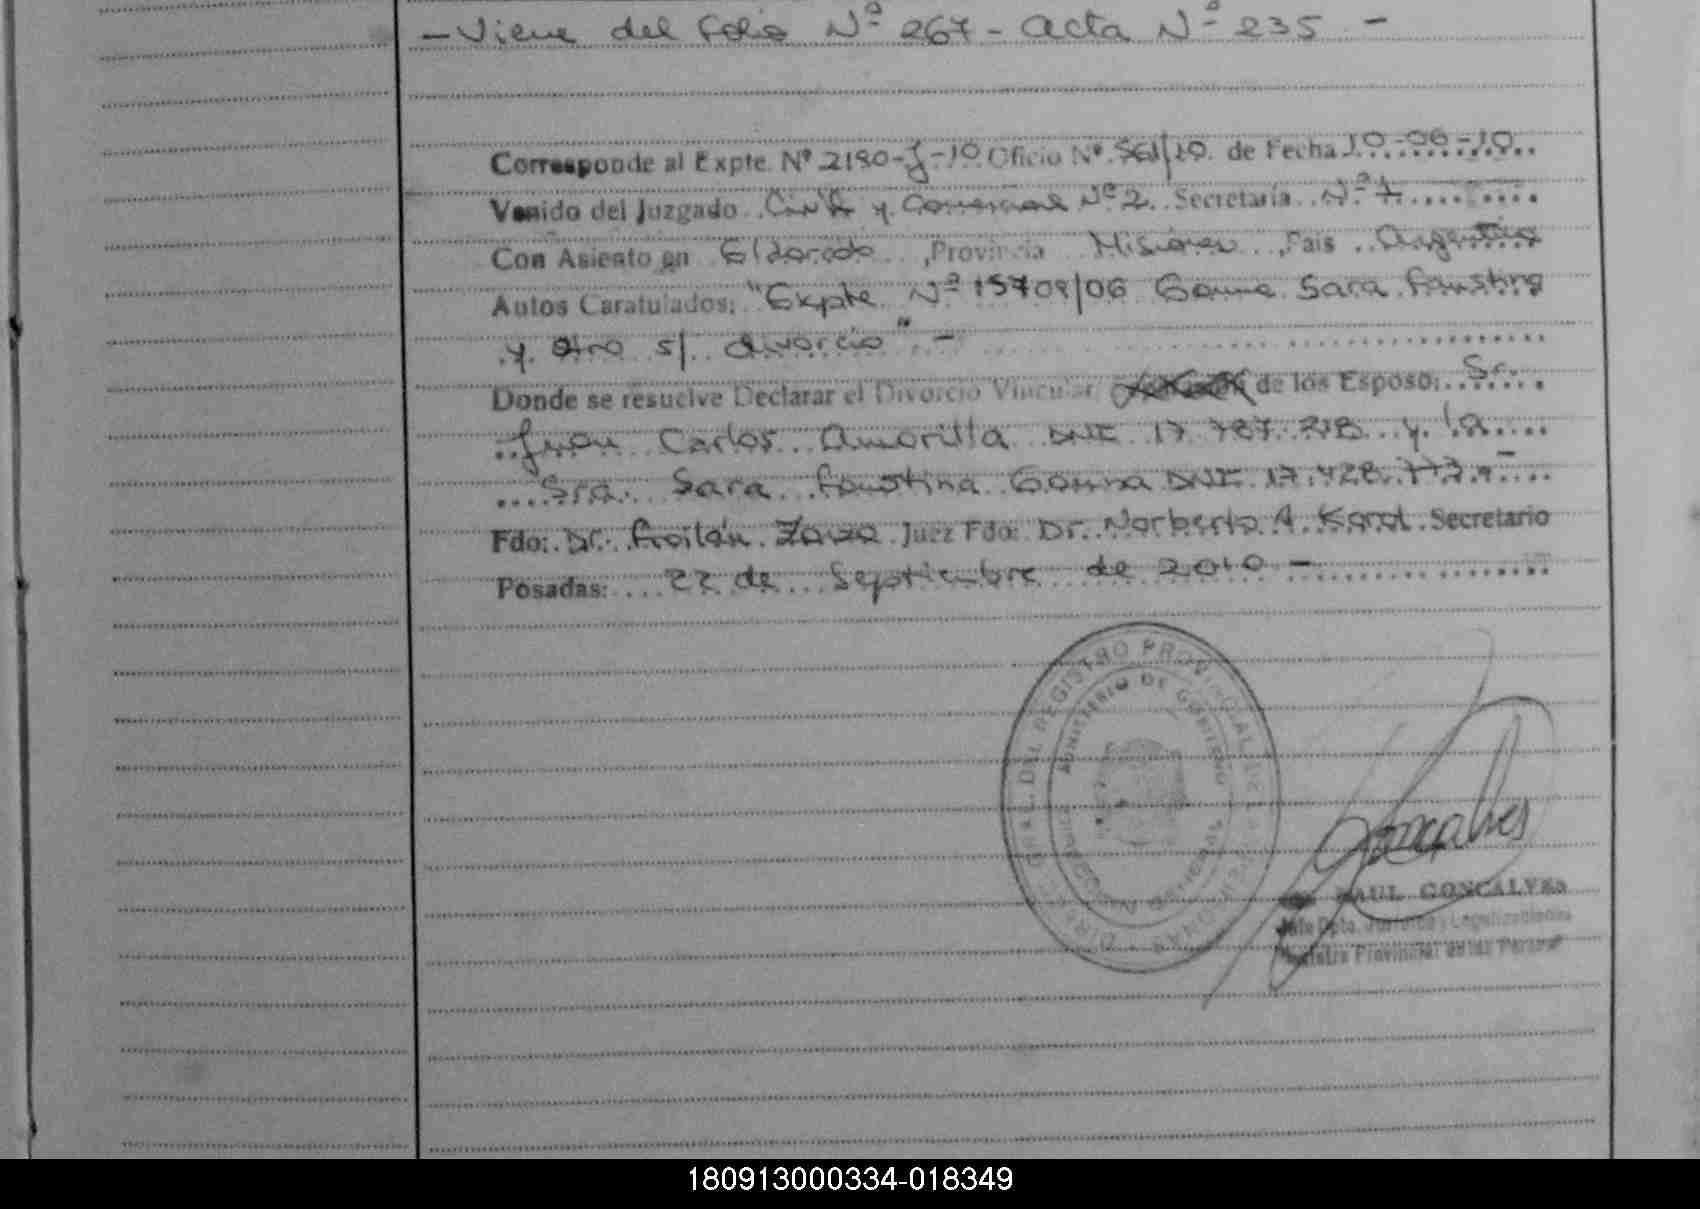 - Viene del folio Nº 267 - acta Nº 235 -
Corresponde al Expte. Nº 2180-J-10 Oficio Nº 561/10 de Fecha 10-06-10
Venido del Juzgado Civil y Comercial Nº 2 Secretaría Nº 1
Con Asiento en Eldorado, Provincia Misiones, País Argentina
Autos Caratulados: "Expte Nº 15709/06 Sara Faustina
y otro s/ divorcio" -
Donde se resuelve Declarar el Divorcio Vincular de los Esposo: Sr.
Juan Carlos Amarilla DNI 17.787.218 y la
Sra. Sara Faustina DNI 17.428.773.-
Fdo: Dr. Froilán Juez Fdo: Dr. Norberto A. Korol Secretario
Posadas: 22 de Septiembre de 2010 -
DIREC. GRAL. DEL REGISTRO PROVINCIAL DE LAS PERSONAS
MINISTERIO DE GOBIERNO
Gonçalves
RAUL GONCALVES
Jefe Dpto. y Legalizaciones
Registro Provincial de las Personas
180913000334-018349